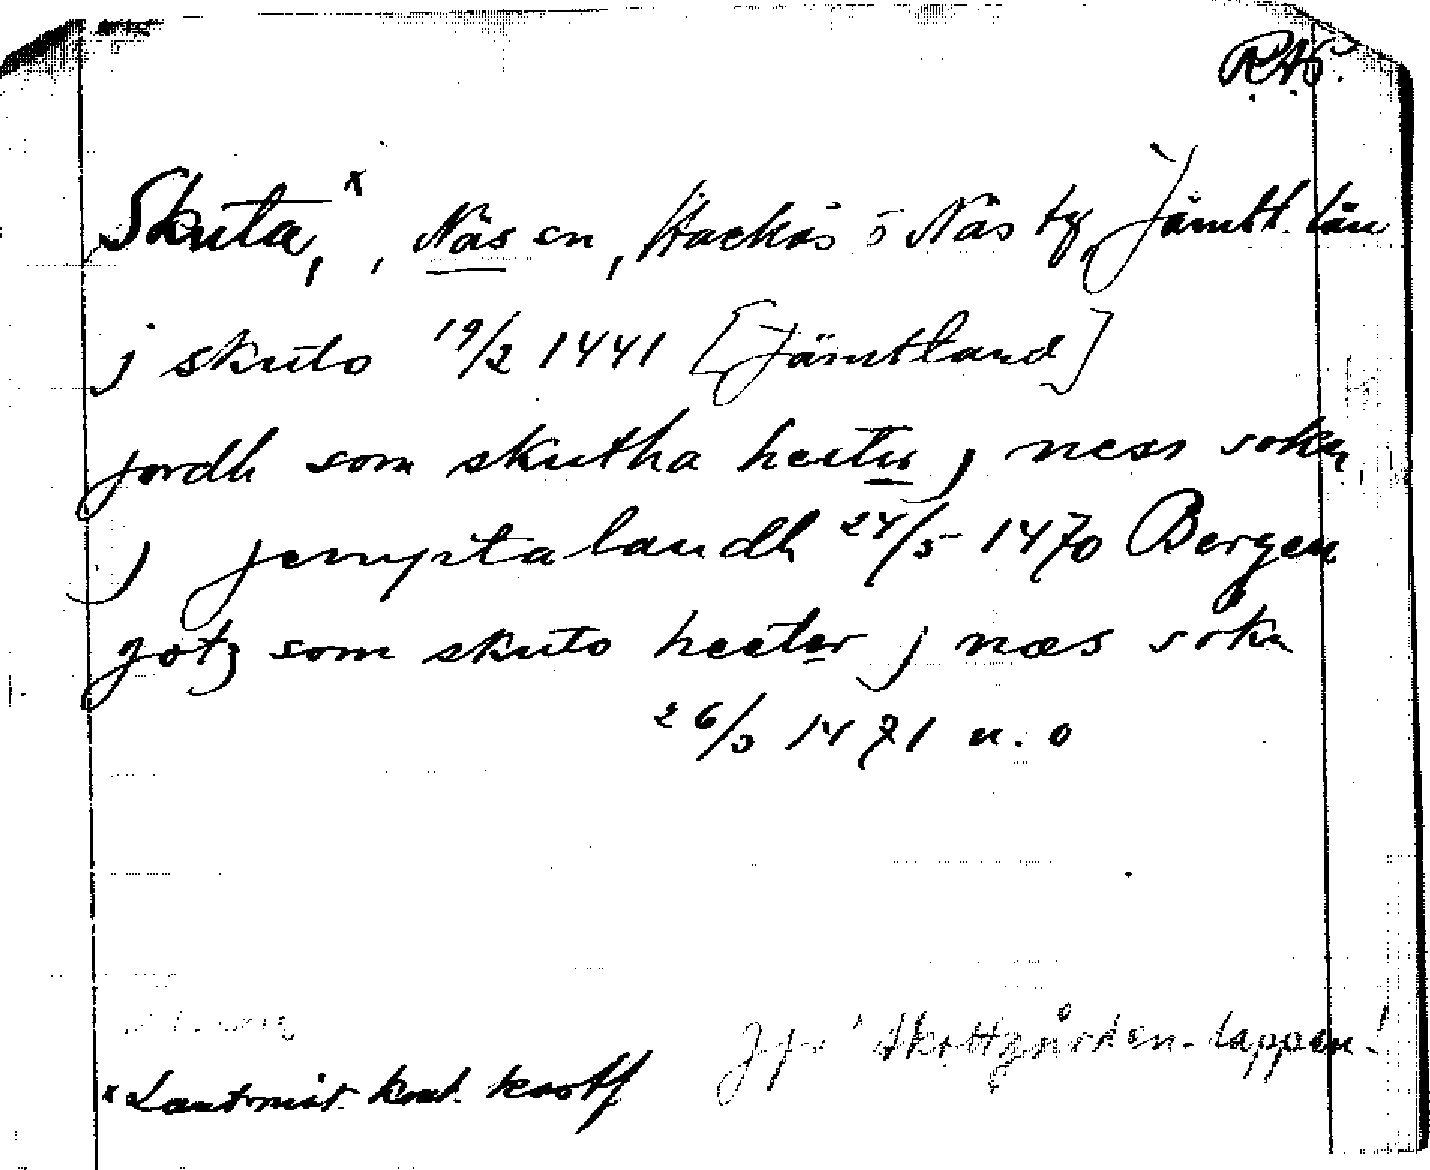 R.A.
Skuta,x , Näs sn, Hackås o Näs tg, Jämtl. län
j skuto 19/2 1441 [Jämtland]
jordh som skutha heeter j ness sokn
j jemptalandh 24/5 1470 Bergen
gotz som skuto heeter j næs sokn
26/5 1471 u. o
Jfr Skottgården-lappen!
x Lantmät. kont. kartf